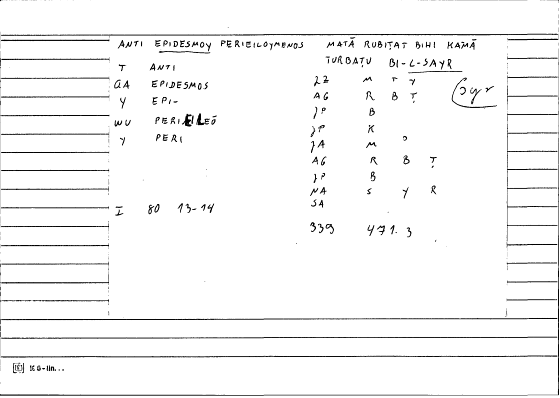 ANTI EPIDESMOY PERIEILOYMENOS MATĀ RUBIṬAT BIHI KAMĀ
TURBAṬU BI-L-SAYR
T ANTI
GA EPIDESMOS
Y EPI-
WU PERIEILEŌ
Y PERI
JZ M T Y
AG R B Ṭ
JP B
JP K
JA M
AG R B Ṭ
JP B
NA S Y R
SA
Syr
I 80 13-14
339 471.3